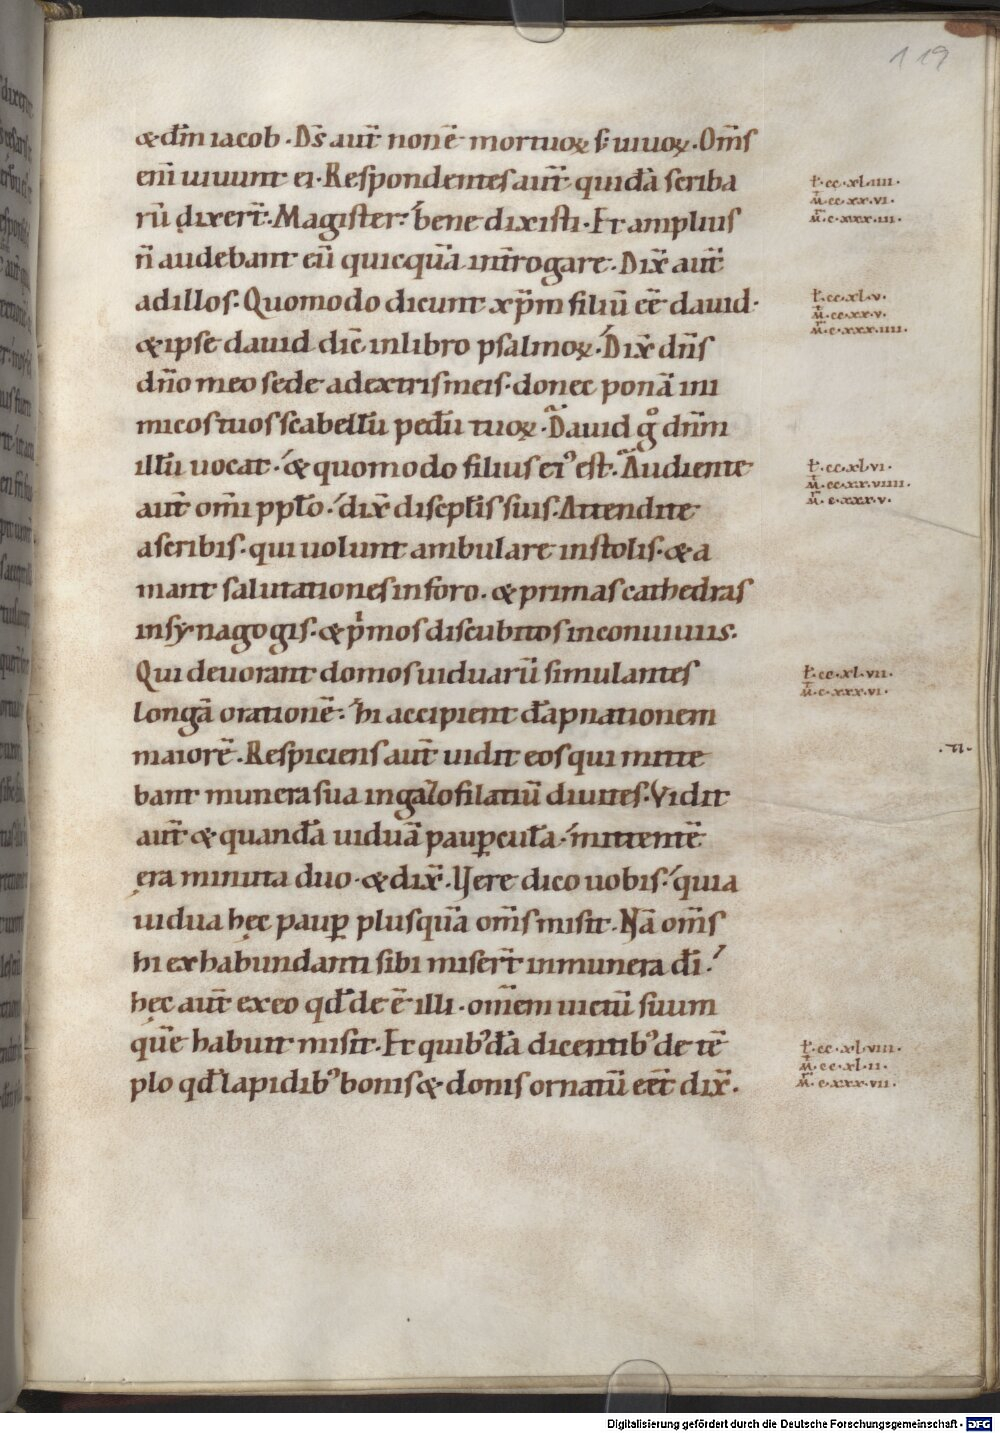 119
&dm̄ iacob · Dſ̄ aut̄ non ē mortuoꝝ ſ; uiuoꝝ · Om̄ſ
eni̅ uiuunt ei · Reſpondenteſ aut̄ quidā ſcriba
rū dixer̄t · Magiſter · bene dixiſti · Et ampliuſ
n̄ audebant eū quicquā int̄rogare · Dix̄ aut̄
ad illoſ · Quomodo dicunt xp̄m filiū eē dauid ·
& ipſe dauid dic̄ in libro pſalmoꝝ · Dix̄ dn̄ſ
dn̄o meo ſede a dextriſ meiſ · donec ponā ini
micoſ tuoſ ſcabellū pedū tuoꝝ · Dauid gͦ dn̄m
illū uocat · & quomodo filiuſ eiꝰ eſt · Audiente
aut̄ om̄i ppło · dix̄ diſcipl̄iſ ſuiſ · Attendite
a ſcribiſ · qui uolunt ambulare in ſtoliſ · & a
mant ſalutationeſ in foro · & primaſ cathedraſ
in ſynagogiſ · & pͥmoſ diſcubitoſ in conuiuiiſ ·
Qui deuorant domoſ uiduarū ſimulanteſ
longā orationē · hi accipient dāpnationem
maiorē · Reſpicienſ aut̄ uidit eoſ qui mitte
bant munera ſua in gazofilatiū diuiteſ · Vidit
aut̄ & quandā uiduā paup̱culā · mittentē
ęra minuta duo · & dix̄ · Vere dico uobiſ · quia
uidua hęc paup̱ pluſquā om̄ſ miſit · Nā om̄ſ
hi ex habundanti ſibi miſer̄t in munera dī ·
hęc aut̄ ex eo qđ de ē illi · om̄em uictū ſuum
quē habuit miſit · Et quibꝰdā dicentibꝰ de tē
plo qđ lapidibꝰ boniſ & doniſ ornatū eēt dix̄ ·
ł · cc · xl · iiii ·
m̄ · cc · xx · vi ·
m̄ · c · xxx · iii ·
ł · cc · xl · v ·
m̄ · cc · xx · v ·
m̄ · c · xxx · iiii ·
ł · cc · xl · vi ·
m̄ · cc · xx · viiii ·
m̄ · c · xxx · v ·
ł · cc · xl · vii ·
m̄ · c · xxx · vi ·
ł · cc · xl · viii ·
m̄ · cc · xl · ii ·
m̄ · c · xxx · vii ·
Digitalisierung gefördert durch die Deutsche Forschungsgemeinschaft - DFG